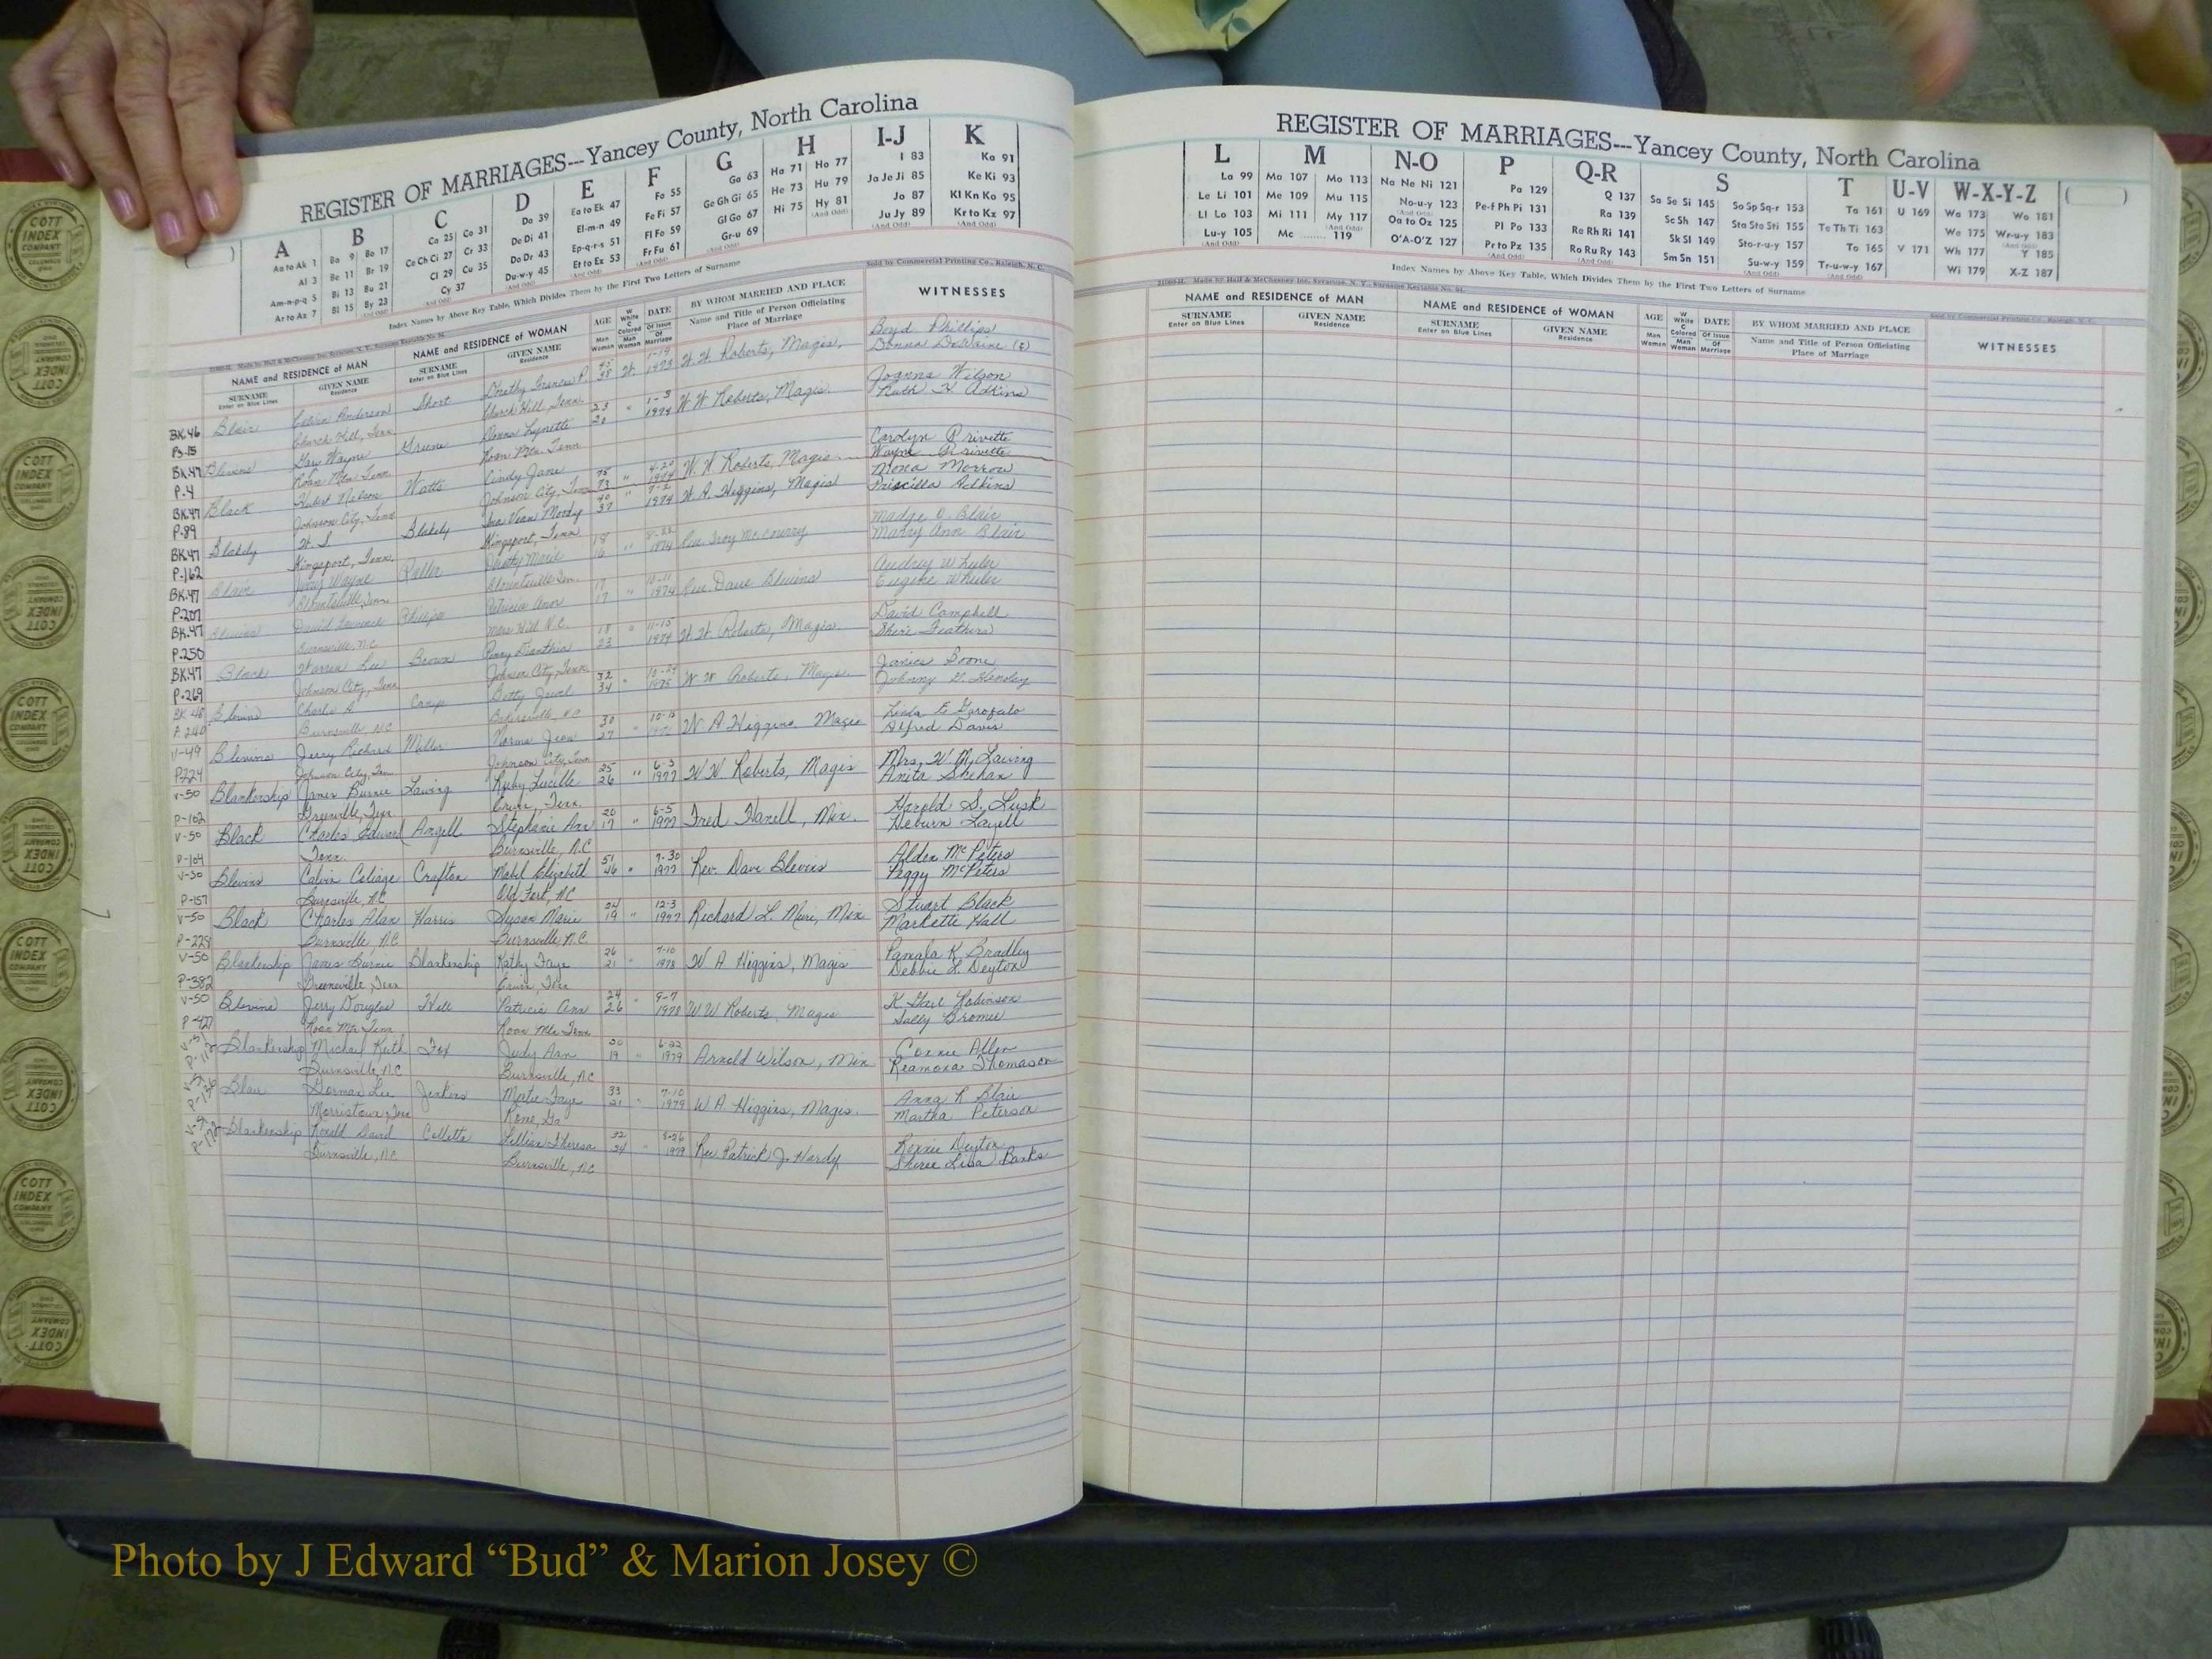 REGISTER OF MARRIAGES---Yancey County, North Carolina
A B C D E F G H I-J K
Aa to Ak 1
Al 3
Am-n-p-q 5
Ar to Az 7
Ba 9 Bo 17
Be 11 Br 19
Bi 13 Bu 21
Bl 15 By 23
Ca 25 Co 31
Ce Ch Ci 27 Cr 33
Cl 29 Cu 35
Cy 37
Da 39
De Di 41
Do Dr 43
Du-w-y 45
Ea to Ek 47
El-m-n 49
Ep-q-r-s 51
Et to Ex 53
Fa 55
Fe Fi 57
Fl Fo 59
Fr Fu 61
Ga 63
Ge Gh Gi 65
Gl Go 67
Gr-u 69
Ha 71 Ho 77
He 73 Hu 79
Hi 75 Hy 81
I 83
Ja Je Ji 85
Jo 87
Ju Jy 89
Ka 91
Ke Ki 93
Kl Kn Ko 95
Kr to Kz 97
Index Names by Above Key Table, Which Divides Them by the First Two Letters of Surname
Sold by Commercial Printing Co., Raleigh, N. C.
NAME and RESIDENCE of MAN
SURNAME
Enter on Blue Lines
GIVEN NAME
Residence
NAME and RESIDENCE of WOMAN
SURNAME
Enter on Blue Lines
GIVEN NAME
Residence
AGE
Man
Woman
W White C Colored
Man
Woman
DATE
Of Issue
Of Marriage
BY WHOM MARRIED AND PLACE
Name and Title of Person Officiating
Place of Marriage
WITNESSES
BK.46 Blair Short Dorothy Frances P. W. 1-19 W.W. Roberts, Magis, Boyd Phillips
Pg-15 Church Hill, Tenn. Church Hill, Tenn. 1973 Donna DeWaine
BK.47 Blevins Gary Wayne Greene Donna Lynette 23 " 1-3 W W Roberts, Magis. Joanna Wilson
P.4 Roan Mtn. Tenn. Roan Mtn. Tenn 20 1974 Ruth H Adkins
BK.47 Black Hubert Nelson Watts Cindy Jane 75 " W. W. Roberts, Magis. Carolyn Privette
P.89 Johnson City, Tenn Johnson City, Tenn 73 1974 Wayne Privette
BK.47 Blakely W. S Blakely Ina Vean Moody 40 " 7-2 W. A. Higgins, Magis Mona Morrow
P.162 Kingsport, Tenn. Kingsport, Tenn 37 1974 Priscilla Adkins
BK.47 Blair Wayne 18 " 1974 Madge O. Blair
P.207 Blountville, Tenn Blountville Tenn. 16 Mary Ann Blair
BK.47 Blevins David Lawrence Phillips Patricia Ann 17 " 10-11 Rev. Dave Blevins Audrey Wheeler
P.250 Burnsville, N.C. Mars Hill N.C. 17 1974 Eugene Wheeler
BK.47 Black Warren Lee Brown 18 " 11-15 W. W. Roberts, Magis. David Campbell
P.269 Johnson City, Tenn Johnson City, Tenn. 23 1974 Feathers
BK-48 Blevins Charlie Camp Betty Jewel 32 " W W Roberts, Magis. Janice Boone
P.240 Burnsville, NC Bakersville, NC 34 1975 Johnny
V-49 Blevins Jerry Richard Miller Norma Jean 30 " 10-15 W A Higgins, Magis Linda E Garofalo
P224 Johnson City, Tenn Johnson City, Tenn 27 Alfred Davis
V-50 Blankenship James Burnie Lawing Ruby Lucille 25 " 6-3 W W Roberts, Magis Mrs. W M. Lawing
P-102 Greenville, Tenn Erwin, Tenn. 26 1977 Anita Shehan
V-50 Black Charles Edward Angell Stephanie Ann 20 " 6-5 Fred Min. Harold S. Lusk
P-104 Tenn. Burnsville, N.C 17 1977
V-50 Blevins Calvin Crafton Mabel Elizabeth 51 " 7-30 Rev. Dave Blevins Alden McPeters
P-157 Burnsville, NC Old Fort, NC 46 1977 Peggy McPeters
V-50 Black Charles Alan Harris Susan Marie 24 " 12-3 Richard L. Min Stuart Black
P-228 Burnsville, N.C Burnsville, N.C. 19 1977 Markette Hall
V-50 Blankenship James Burnie Blankenship Kathy Faye 26 " 7-10 W A Higgins, Magis Pamala K Bradley
P-382 Greeneville, Tenn Erwin, Tenn 21 1978 Debbie L. Deyton
V-50 Blevins Jerry Douglas Patricia Ann 24 " 9-7 W W Roberts, Magis K. Gail Robinson
P-427 Roan Mtn Tenn Roan Mtn Tenn 26 1978 Sally
V-51 Blankenship Michael Keith Fox Judy Ann 20 " 6-22 Arnold Wilson, Min Connie Allen
P-112 Burnsville, N.C Burnsville, N.C 19 1979 Reamona Thomason
Blair Gorman Lee Jenkins Faye 33 " 7-10 W A. Higgins, Magis. Anna R Blair
Morristown, Tenn Rome, Ga 21 1979 Martha Peterson
Blankenship David Collette Lillian Theresa 32 " 8-26 Rev. Patrick J. Hardy Ronnie Deyton
Burnsville, NC Burnsville, NC 34 1979 Lisa Banks
REGISTER OF MARRIAGES---Yancey County, North Carolina
L M N-O P Q-R S T U-V W-X-Y-Z
La 99
Le Li 101
Ll Lo 103
Lu-y 105
Ma 107 Mo 113
Me 109 Mu 115
Mi 111 My 117
Mc ........ 119
Na Ne Ni 121
No-u-y 123
Oa to Oz 125
O'A-O'Z 127
Pa 129
Pe-f Ph Pi 131
Pl Po 133
Pr to Pz 135
Q 137
Ra 139
Re Rh Ri 141
Ro Ru Ry 143
Sa Se Si 145 So Sp Sq-r 153
Sc Sh 147 Sta Ste Sti 155
Sk Sl 149 Sto-r-u-y 157
Sm Sn 151 Su-w-y 159
Ta 161
Te Th Ti 163
To 165
Tr-u-w-y 167
U 169
V 171
Wa 173 Wo 181
We 175 Wr-u-y 183
Wh 177 Y 185
Wi 179 X-Z 187
Index Names by Above Key Table, Which Divides Them by the First Two Letters of Surname
NAME and RESIDENCE of MAN
SURNAME
Enter on Blue Lines
GIVEN NAME
Residence
NAME and RESIDENCE of WOMAN
SURNAME
Enter on Blue Lines
GIVEN NAME
Residence
AGE
Man
Woman
W White C Colored
Man
Woman
DATE
Of Issue
Of Marriage
BY WHOM MARRIED AND PLACE
Name and Title of Person Officiating
Place of Marriage
WITNESSES
COTT INDEX COMPANY
Photo by J Edward “Bud” & Marion Josey ©